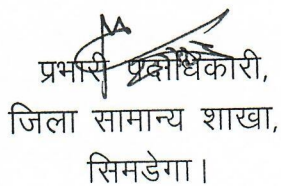 प्रभारी पदाधिकारी,
जिला सामान्य शाखा,
सिमडेगा।